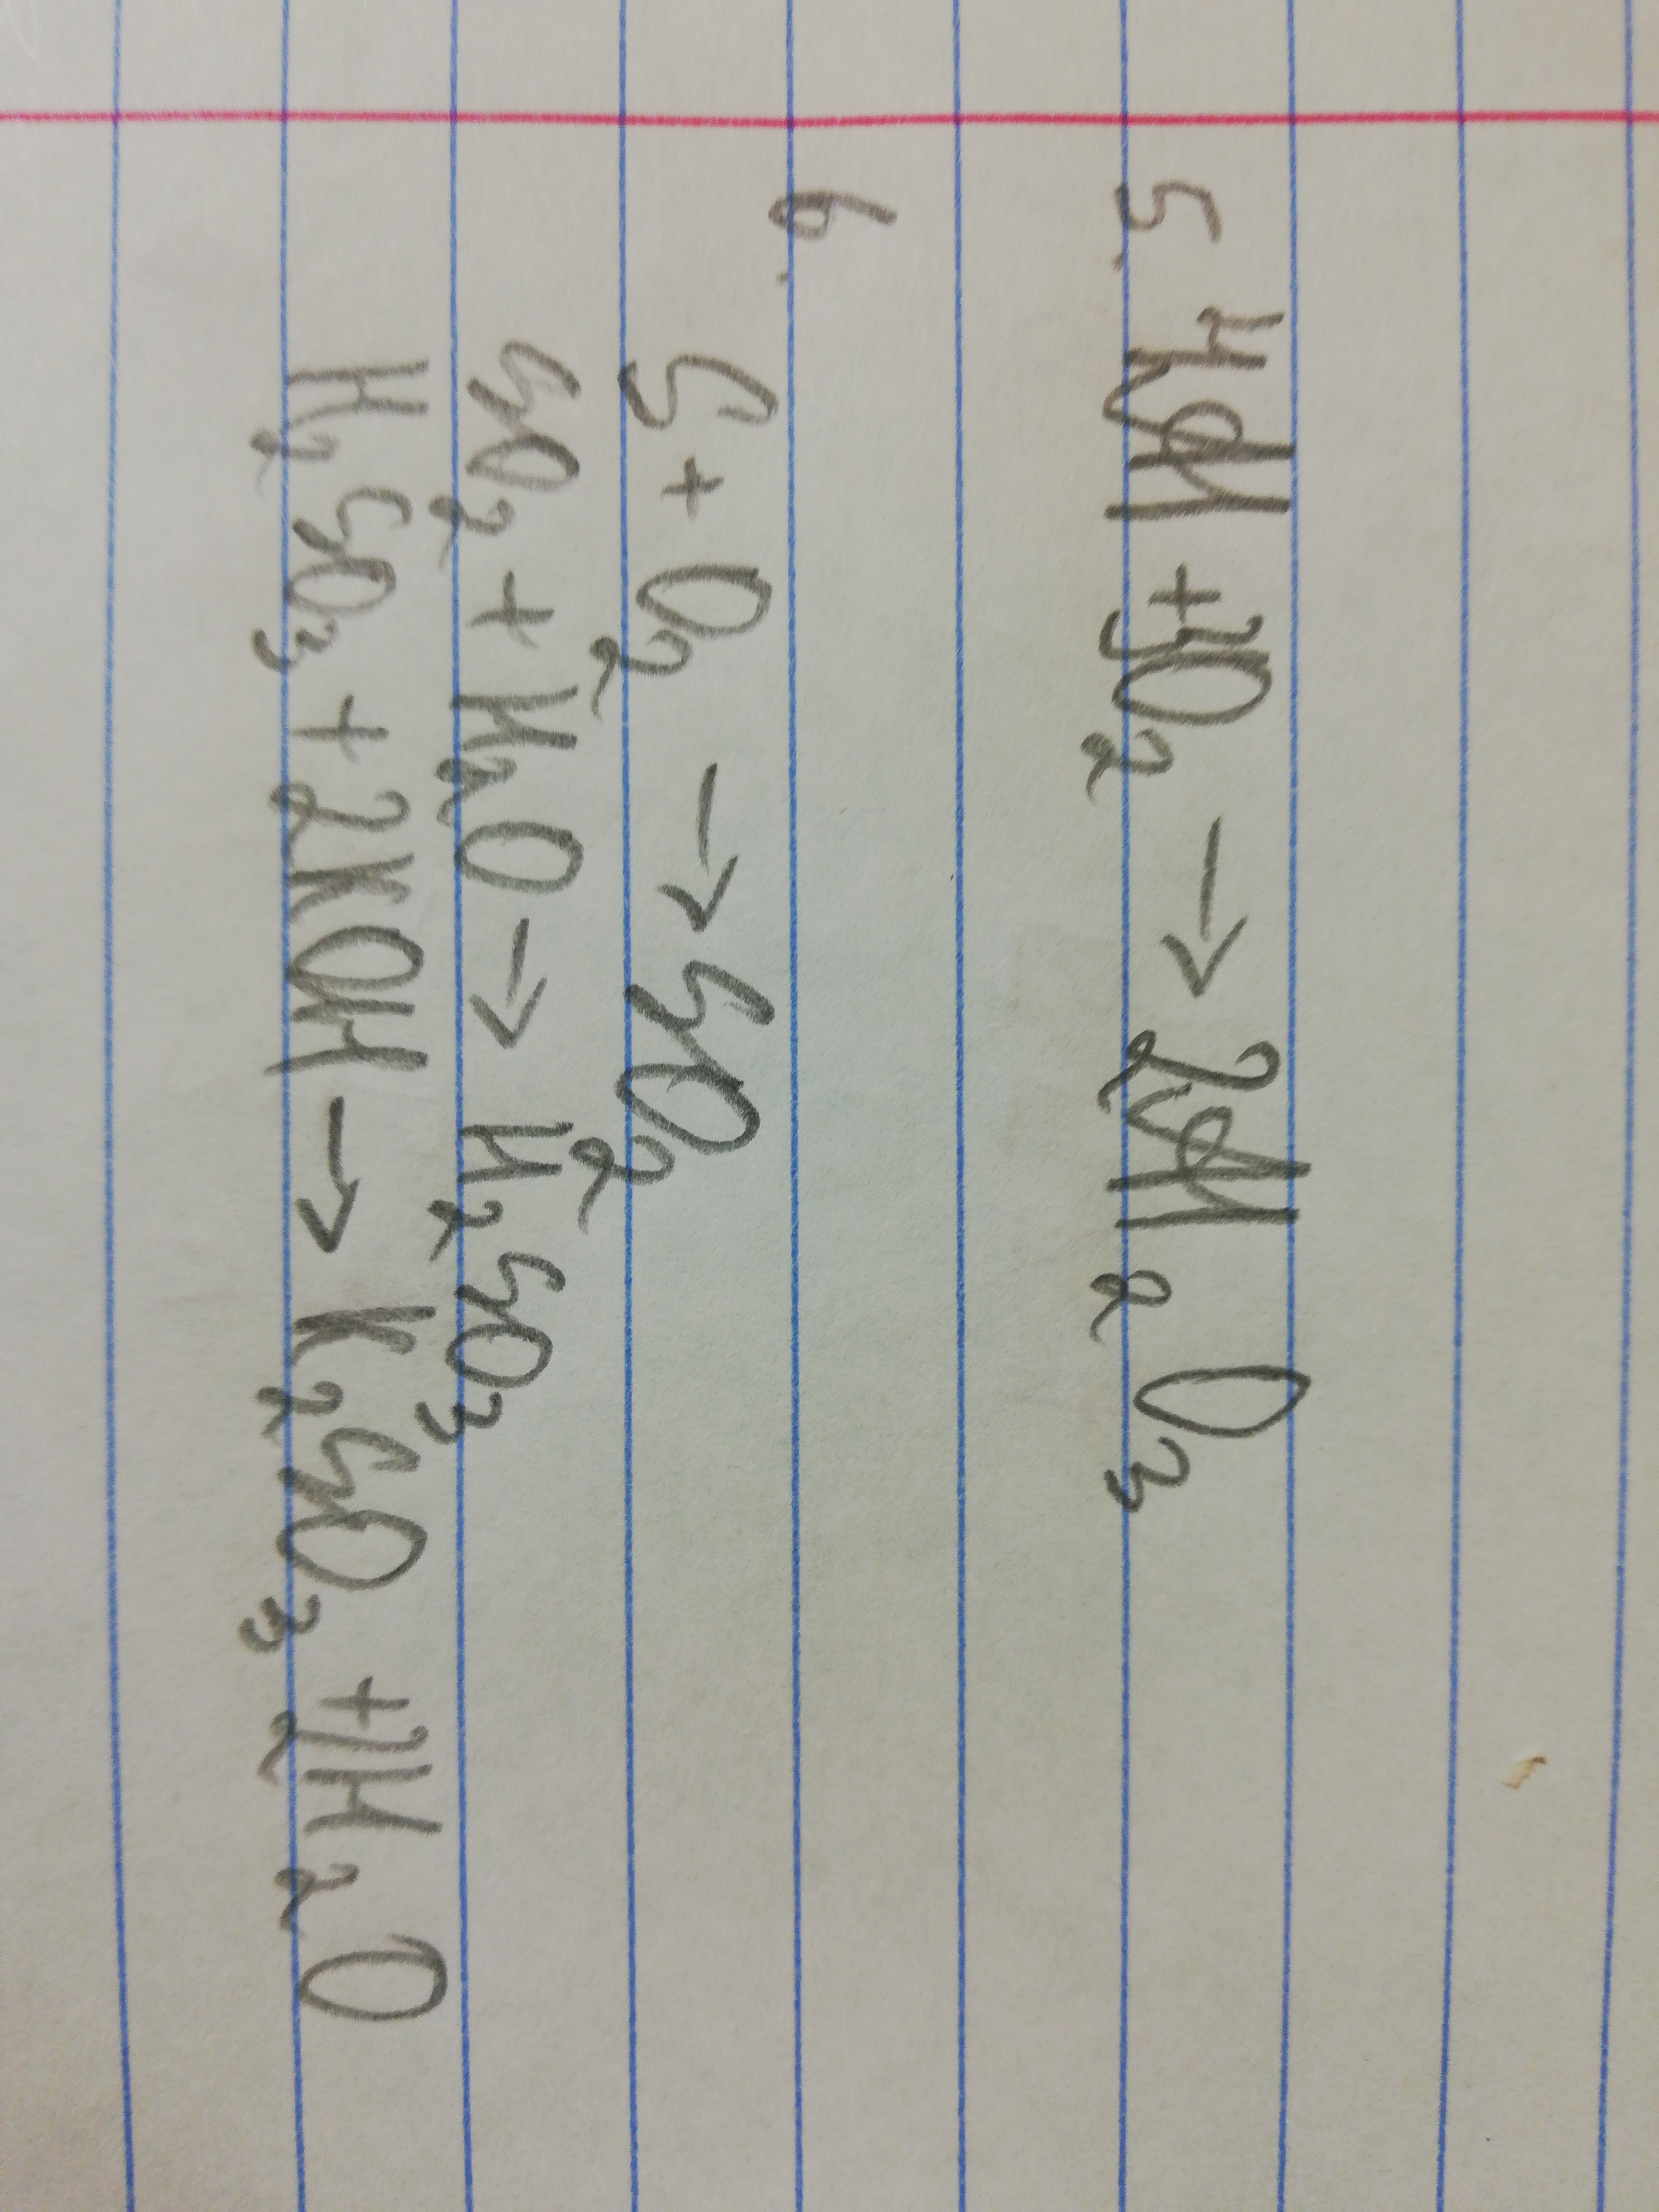 5. 4Al + 3O₂ → 2Al₂O₃
6.
S + O₂ → SO₂
SO₂ + H₂O → H₂SO₃
H₂SO₃ + 2KOH → K₂SO₃ + 2H₂O